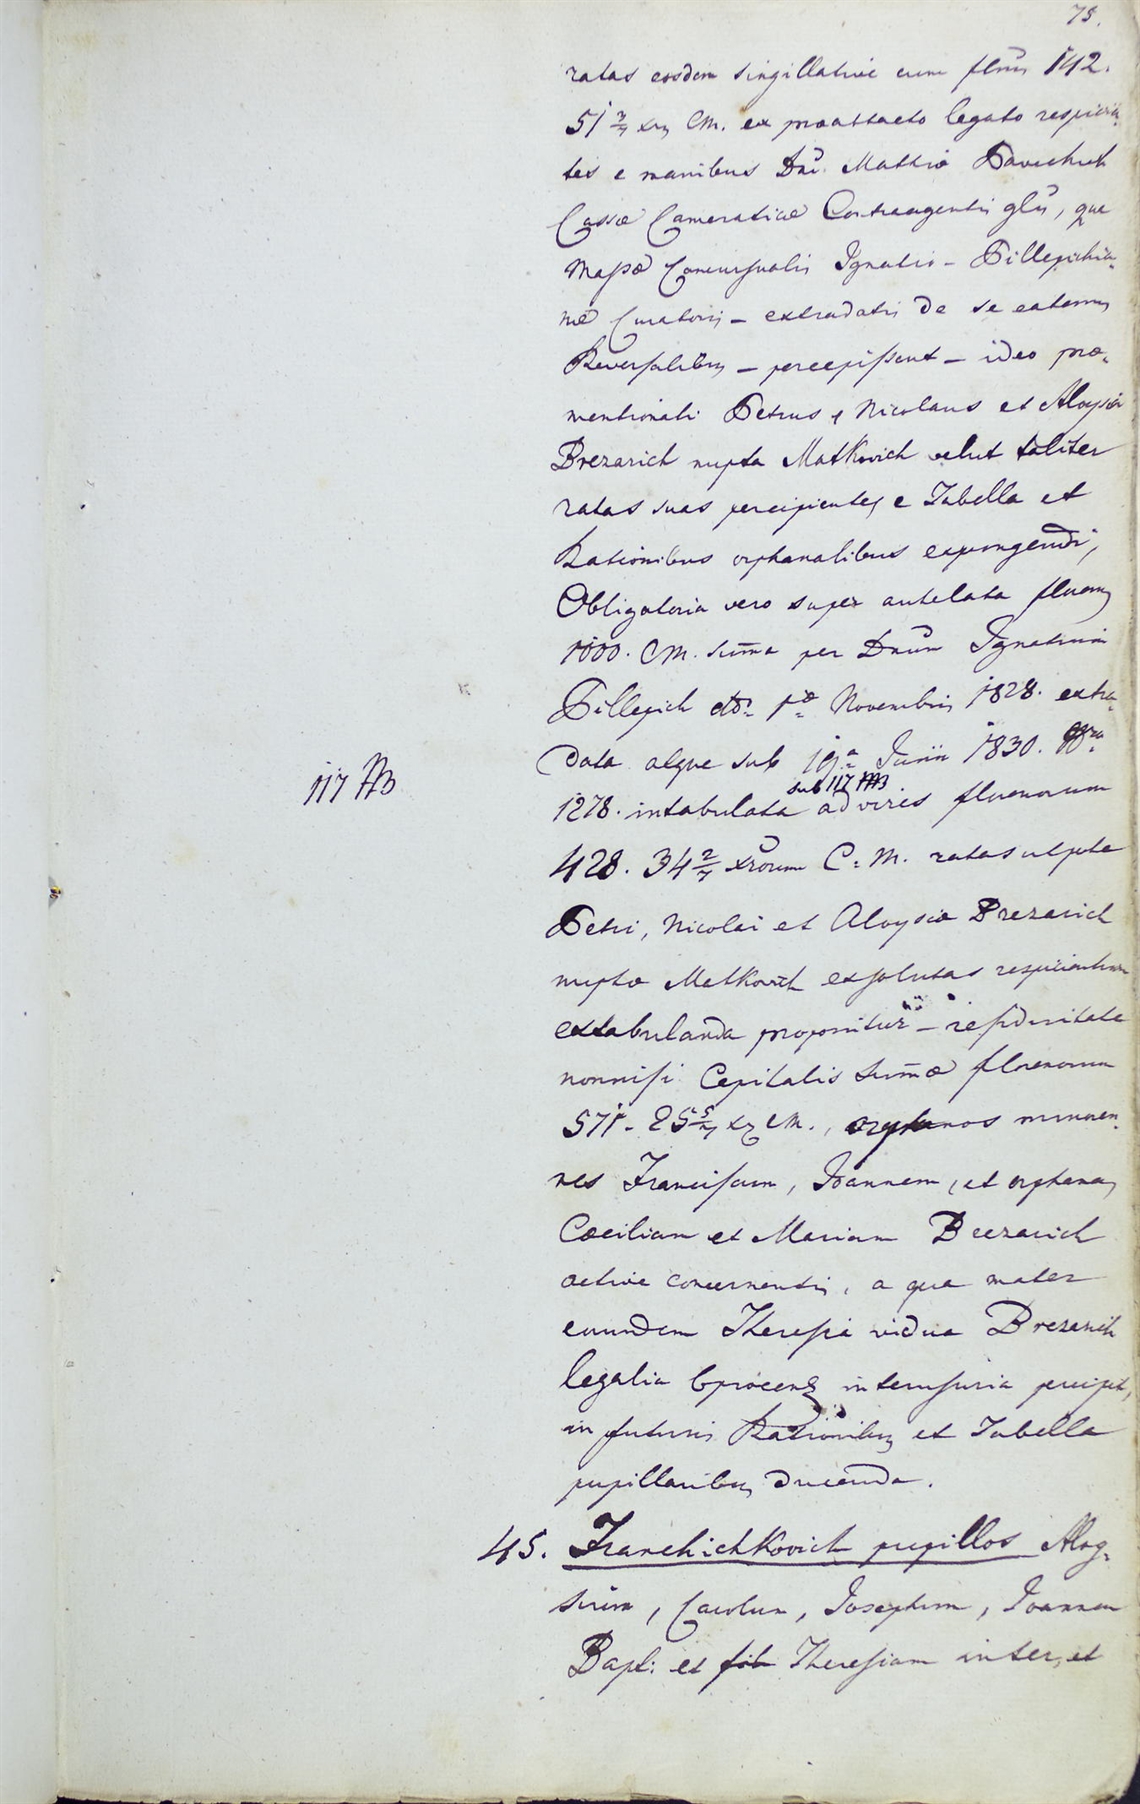 75.
ratas eosdem singillative cum flnis 142.
51 3/7 xrs CM. ex praeattacto legato respicien-
tes e manibus Dni Mathiae
Cassae Cameraticae Contraagentis qua
Massae Concursualis Ignatio-Pillepichia-
nae Curatoris – extradatis de se eatenus
Reversalibus – percepissent – ideo prae-
mentionati Petrus, Nicolaus et Aloysia
Brezarich nupta Matkovich velut taliter
ratas suas percipientes e Tabella et
Rationibus orphanalibus expungendi,
Obligatoria vero super antelata florenorum
1000. CM. suma per Dnum Ignatium
Pillepich ddo 1o Novembris 1828. extra-
data atque sub 19a Junii 1830. Nro
117 AB
1278. intabulata sub 117 AB ad vires florenorum
428. 34 2/7 xrorum C: M. ratas utpote
Petri, Nicolai et Aloysiae Brezarich
nuptae Matkovich exsolutas respicientium
extabulanda proponitur – residuitate
nonnisi Capitalis sumae florenorum
571. 25 5/7 xr CM., orphanos minoren-
nes Franciscum, Joannem, et orphanas
Caeciliam et Mariam Brezarich
active concernentis, a qua mater
eorundem Theresia vidua Brezarich
legalia 6procent interusuria percipit,
in futuris Rationibus et Tabella
pupillaribus ducenda.
45. Franchichkovich pupillos Aloy-
sium, Carolum, Josephum, Joannem
Bapt: et Theresiam inter, et